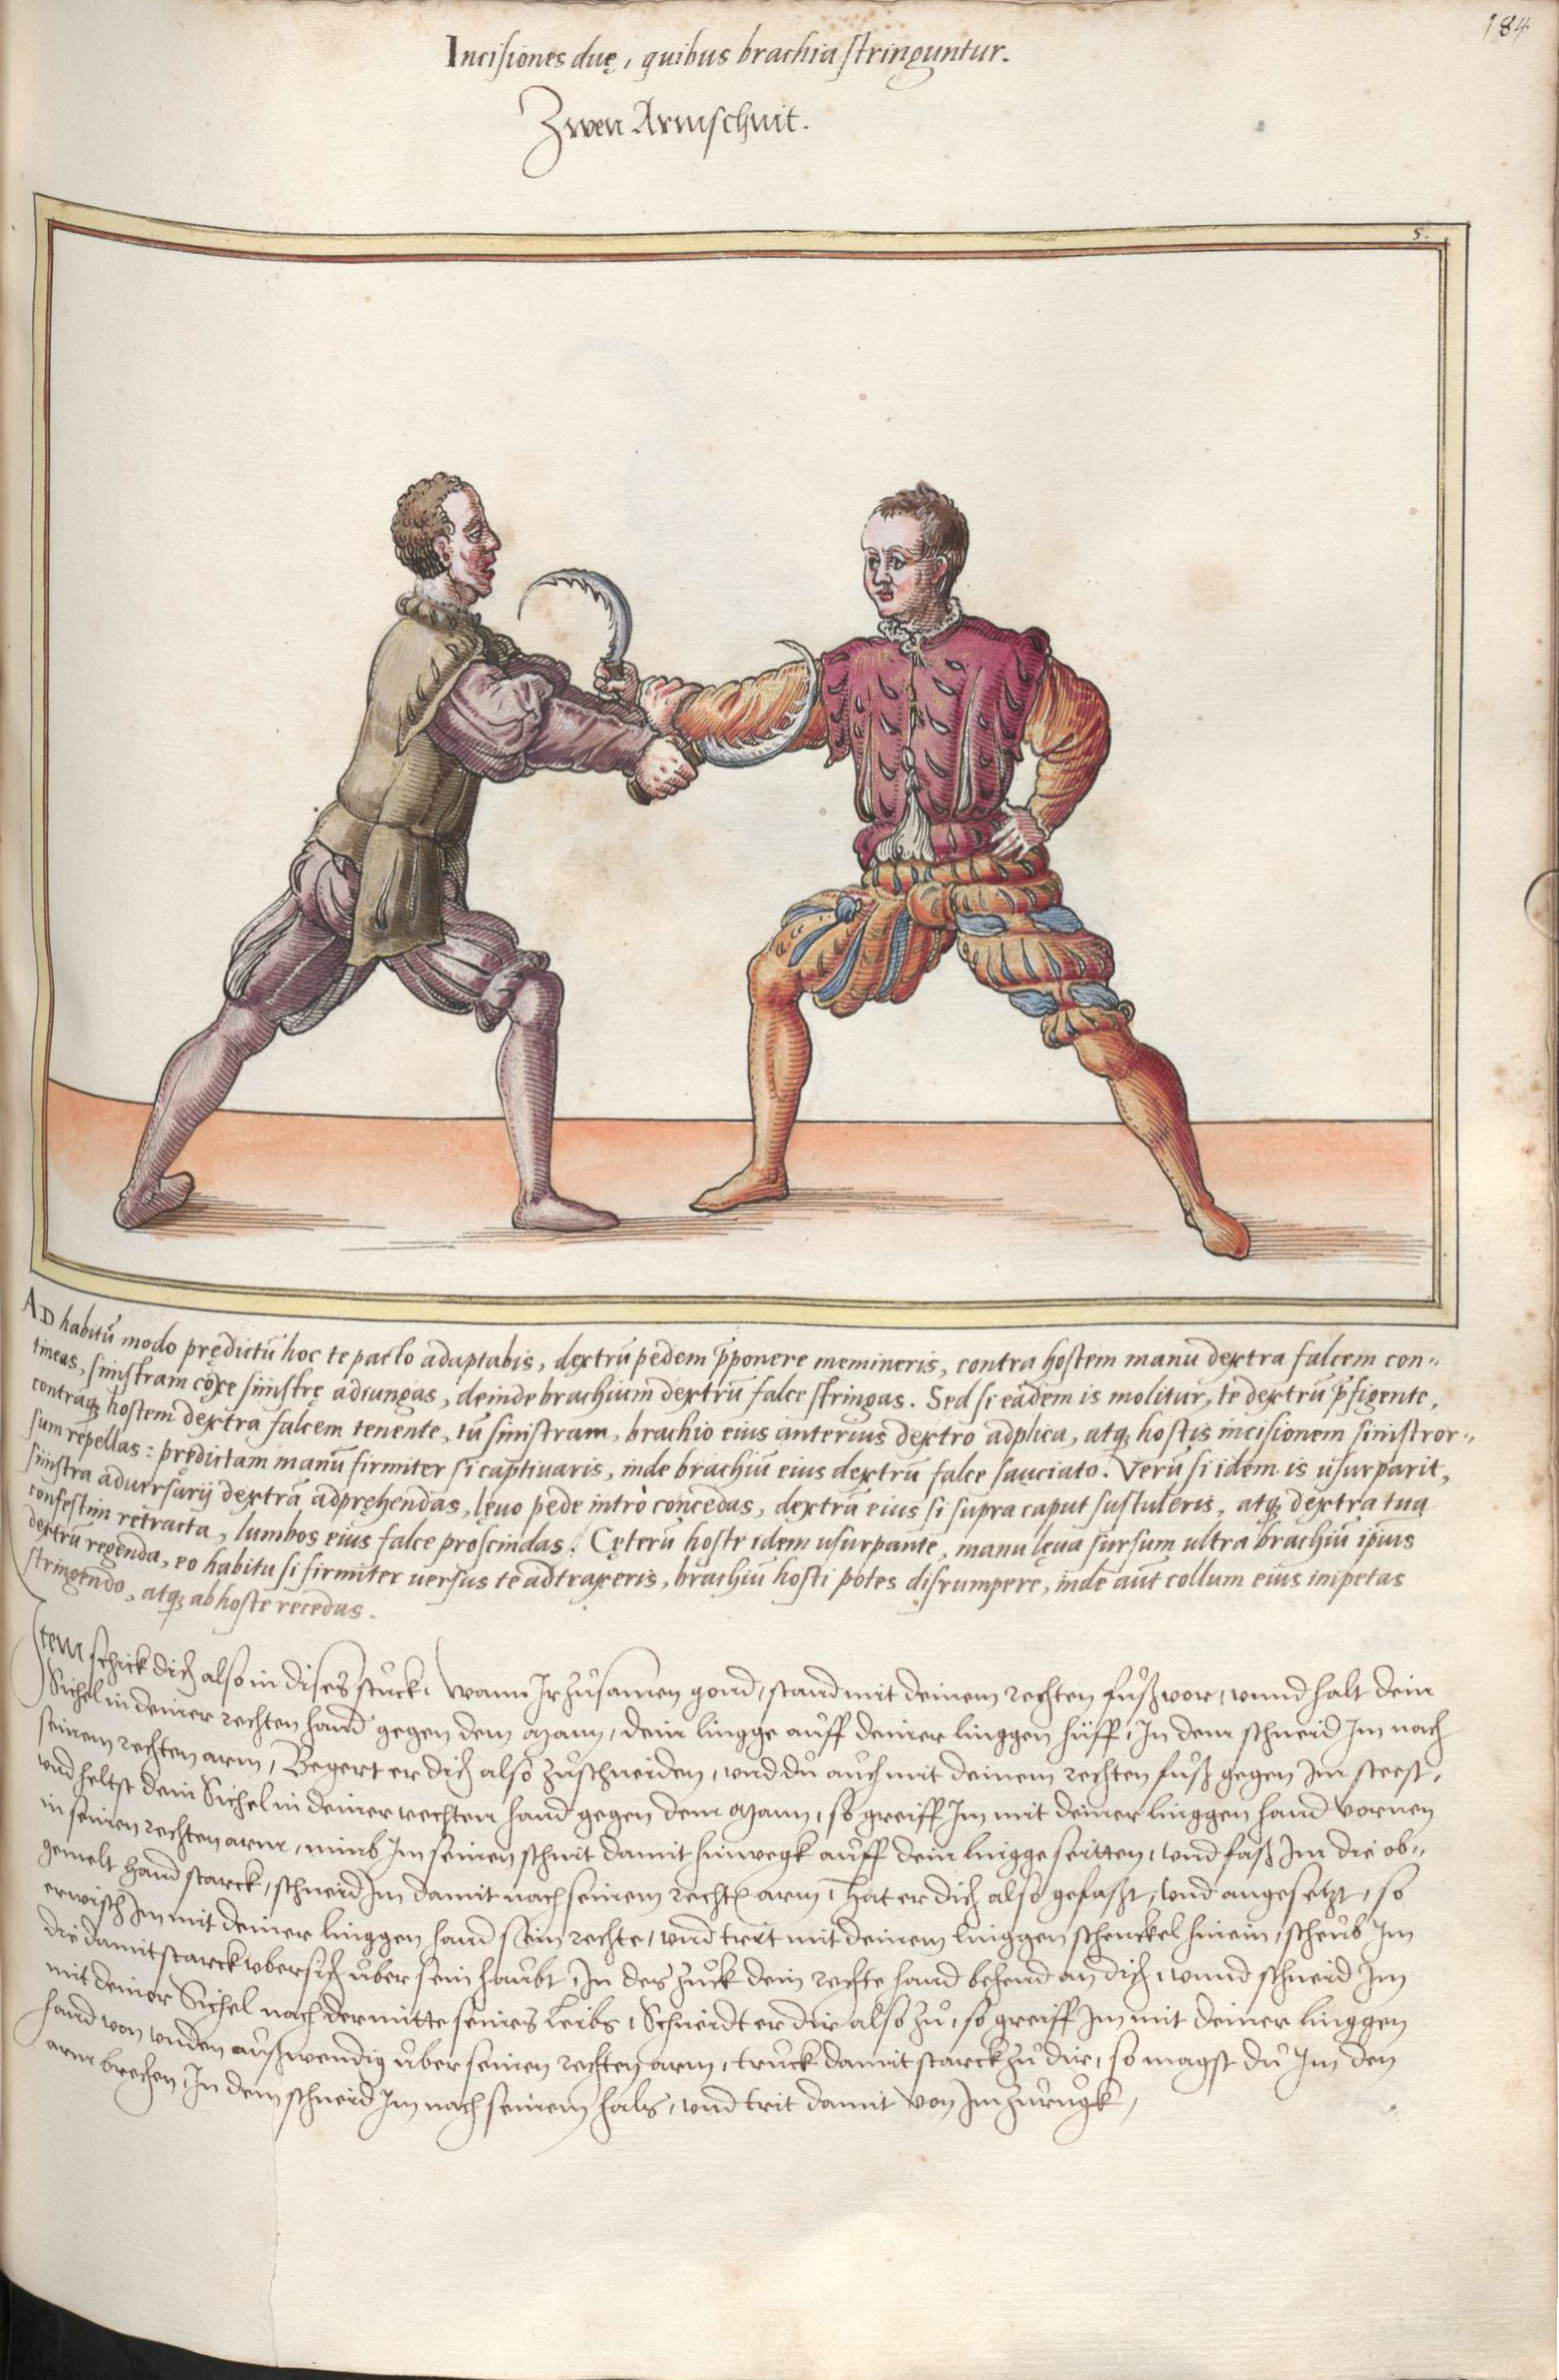 184
Incisiones duę, quibus brachia stringuntur.
Zwen Armschnit.
5.
AD habitũ modo prędictũ hoc te pacto adaptabis, dextrũ pedem p̃ponere memineris, contra hostem manu dextra falcem con„
tineas, sinistram coxę sinistrę adiungas, deinde brachium dextrũ falce stringas. Sed si eadem is molitur, te dextrũ p̃figente,
contraq₃ hostem dextra falcem tenente, tũ sinistram, brachio eius anterius dextro adplica, atq₃ hostis incisionem sinistror„
sum repellas: prędictam manũ firmiter si captiuaris, inde brachiũ eius dextrũ falce sauciato. Verũ si idem is usurparit,
sinistra aduersarij dextrã adpręhendas, lęuo pede intrò concedas, dextrã eius si supra caput sustuleris, atq₃ dextra tua
confestim retracta, lumbos eius falce proscindas. Cęterũ hoste idem usurpante, manu lęua sursum ultra brachiũ ipsius
dextrũ regenda, eo habitu si firmiter uersus te adtraxeris, brachiũ hosti potes disrumpere, inde aũt collum eius inpetas
stringendo, atq₃ ab hoste recedas.
Item schick dich also in dises stuck, wann Ir zůsamen gond, stand mit deinem rechten fůß vor, unnd halt dein
Sichel in deiner rechten hand gegen dem Mann, dein lingge auff deiner linggen hüff, In dem schneid Im nach
seinem rechten arm, Begert er dich also zůschneiden, und du auch mit deinem rechten fůß gegen Im steest,
und heltst dein Sichel in deiner rechten hand gegen dem Mann, so greiff Im mit deiner linggen hand vornen
in seinen rechten arm, nimb Im seinen schnit damit hinwegk auff dein lingge seitten, und faß Im die ob„
gemelt hand starck, schneid Im damit nach seinem rechtẽ arm, hat er dich also gefaßt, und angesetzt, so
erwisch Im mit deiner linggen hand sein rechte, und trit mit deinem linggen schenckel hinein, scheub Im
die damit starck ubersich über sein haubt, In des zuck dein rechte hand behend an dich, unnd schneid Im
mit deiner Sichel nach der mitte seines Leibs, Schneidt er dir also zů, so greiff Im mit deiner linggen
hand von unden außwendig über seinen rechten arm, truck damit starck zů dir, so magst du Im den
arm brechen, In dem schneid Im nach seinem hals, und trit damit von Im zůrugk,